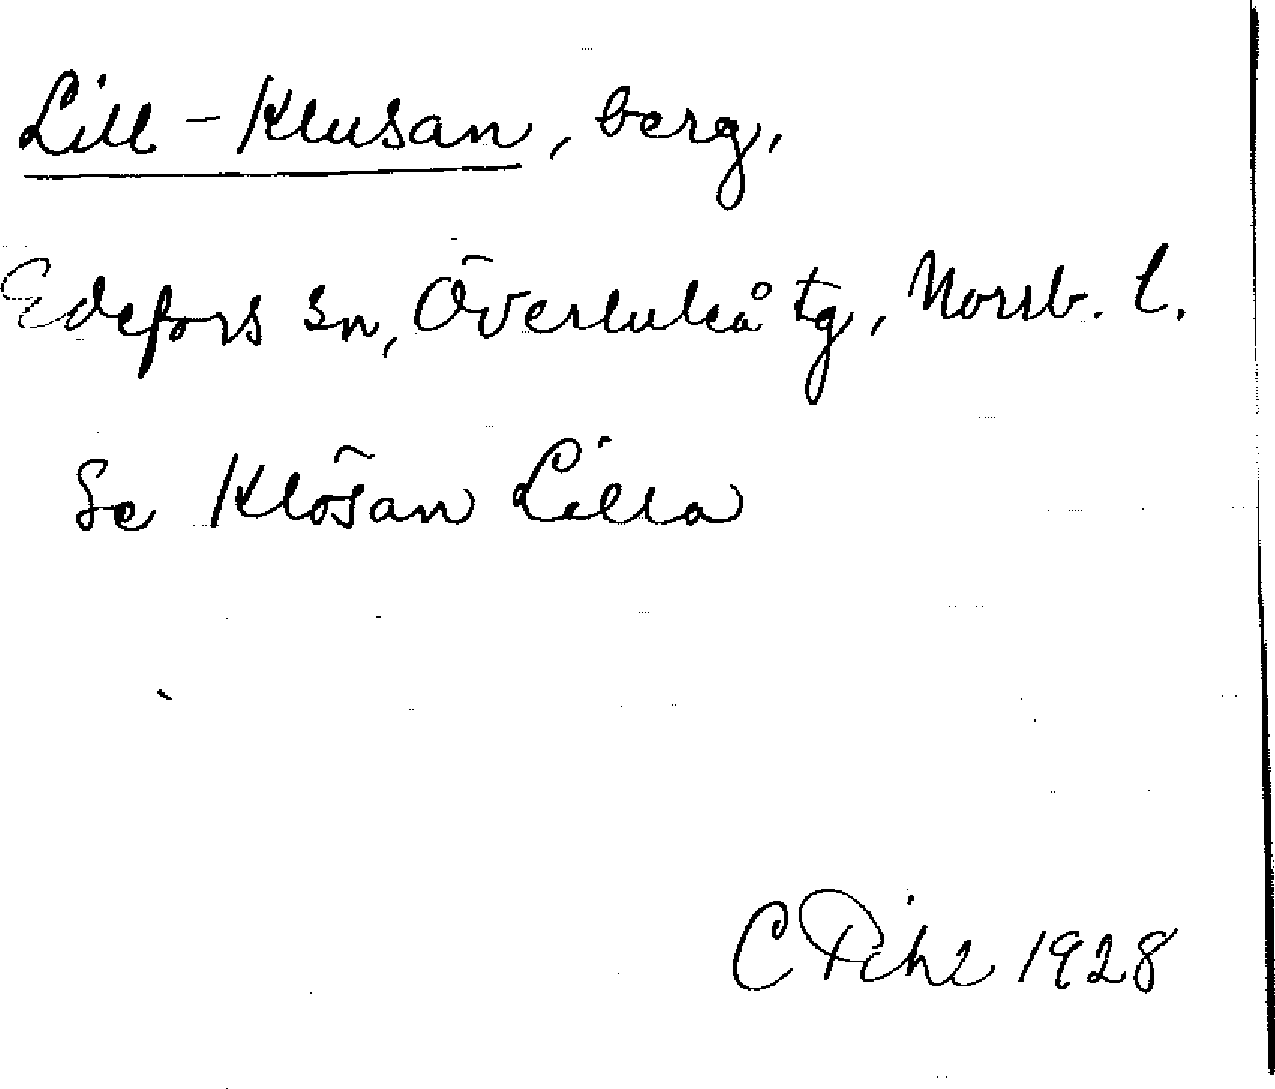 Lill-Klusan, berg,
Edefors sn, Överluleå tg, Norrb. l.
Se Klösan Lilla
C Pihl 1928